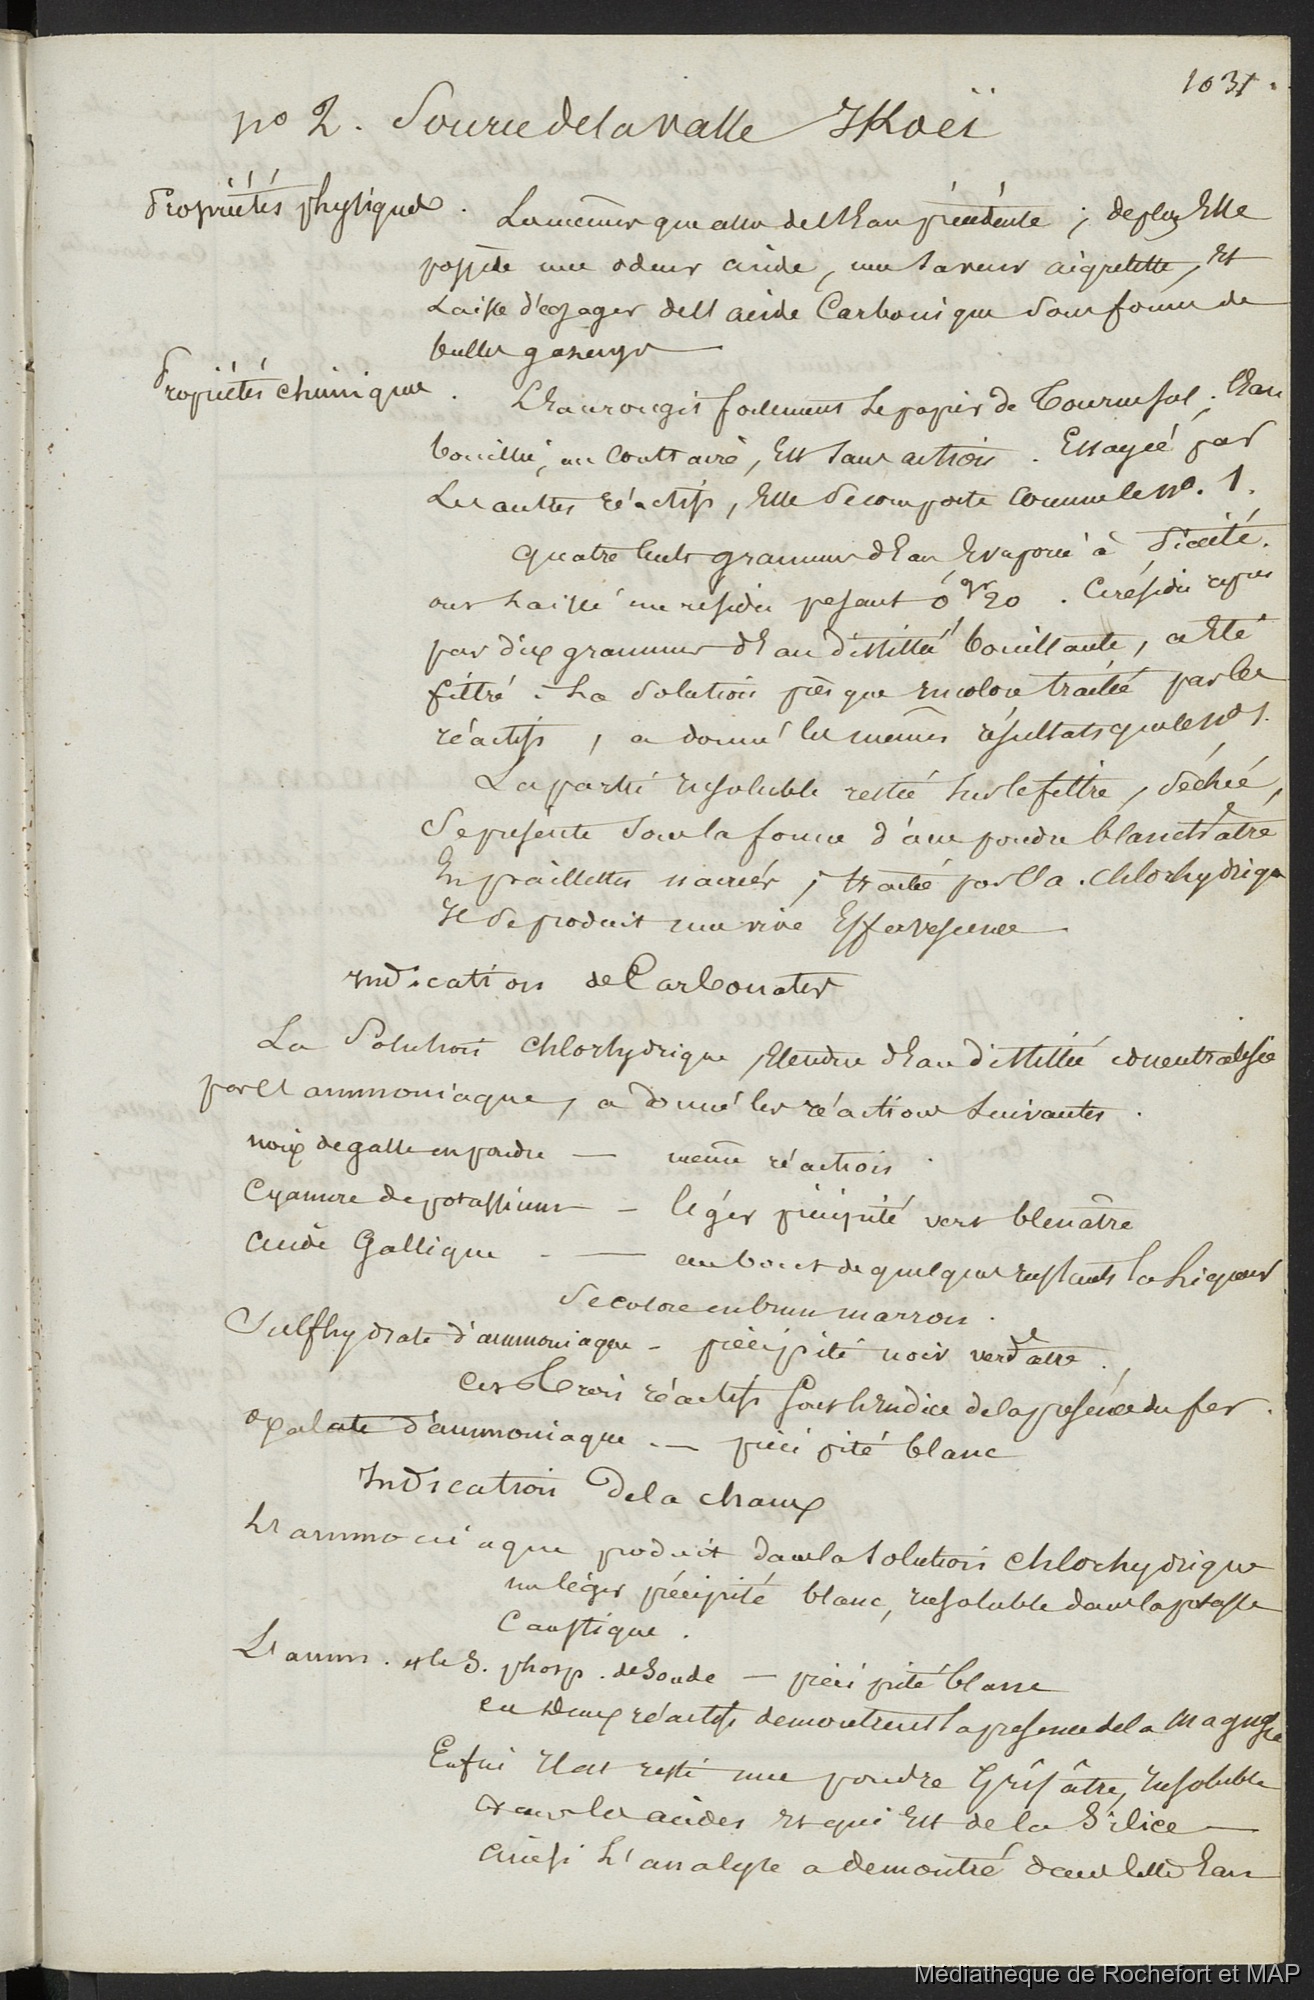 1031.
no 2. Source de la vallée Ikoëi
Propriétés physiques. Les mêmes que celles de l'Eau précédente ; de plus Elle
possède une odeur acide, une saveur aigrelette, et
Laisse dégager de l'acide Carbonique sous forme de
bulles gazeuses
Propriétés chimiques. L'Eau rougit fortement le papier de Tournesol ; l'Eau
bouillie, au Contraire, Est sans action. Essayée par
Les autres réactifs, Elle se comporte comme le No. 1.
Quatre cents grammes d'Eau Evaporés à siccité.
ont laissé un résidu pesant 0,gr20. Ce résidu repris
par dix grammes d'Eau distillée bouillante, a Eté
filtré. La solution presque incolore traitée par les
réactifs, a donné les mêmes résultats que le No 1.
La partie insoluble restée sur le filtre, séchée,
se présente sous la forme d'une poudre blanchâtre
En paillettes nacrées ; traitée par l'a. chlorhydrique
Il se produit une vive Effervescence
Indication de Carbonates
La Solution chlorhydrique étendue d'Eau distillée et neutralisée
par l'ammoniaque, a donné les réactions suivantes.
noix de galle en poudre — même réaction.
Cyanure de potassium — léger précipité vert bleuâtre
acide Gallique — au bout de quelques instants la liqueur
se colore en brun marron.
Sulfhydrate d'ammoniaque — précipité noir verdâtre.
Ces trois réactifs sont l'indice de la présence du fer.
oxalate d'ammoniaque — précipité blanc
Indication de la chaux
L'ammoniaque produit dans la solution chlorhydrique
un léger précipité blanc, insoluble dans la potasse
Caustique.
L'amm. et le S. phosp. de Soude — précipité blanc
ces deux réactifs démontrent la présence de la Magnésie
Enfin Il est resté une poudre Grisâtre, insoluble
dans les acides et qui Est de la Silice —
ainsi l'analyse a démontré dans cette Eau
Médiathèque de Rochefort et MAP